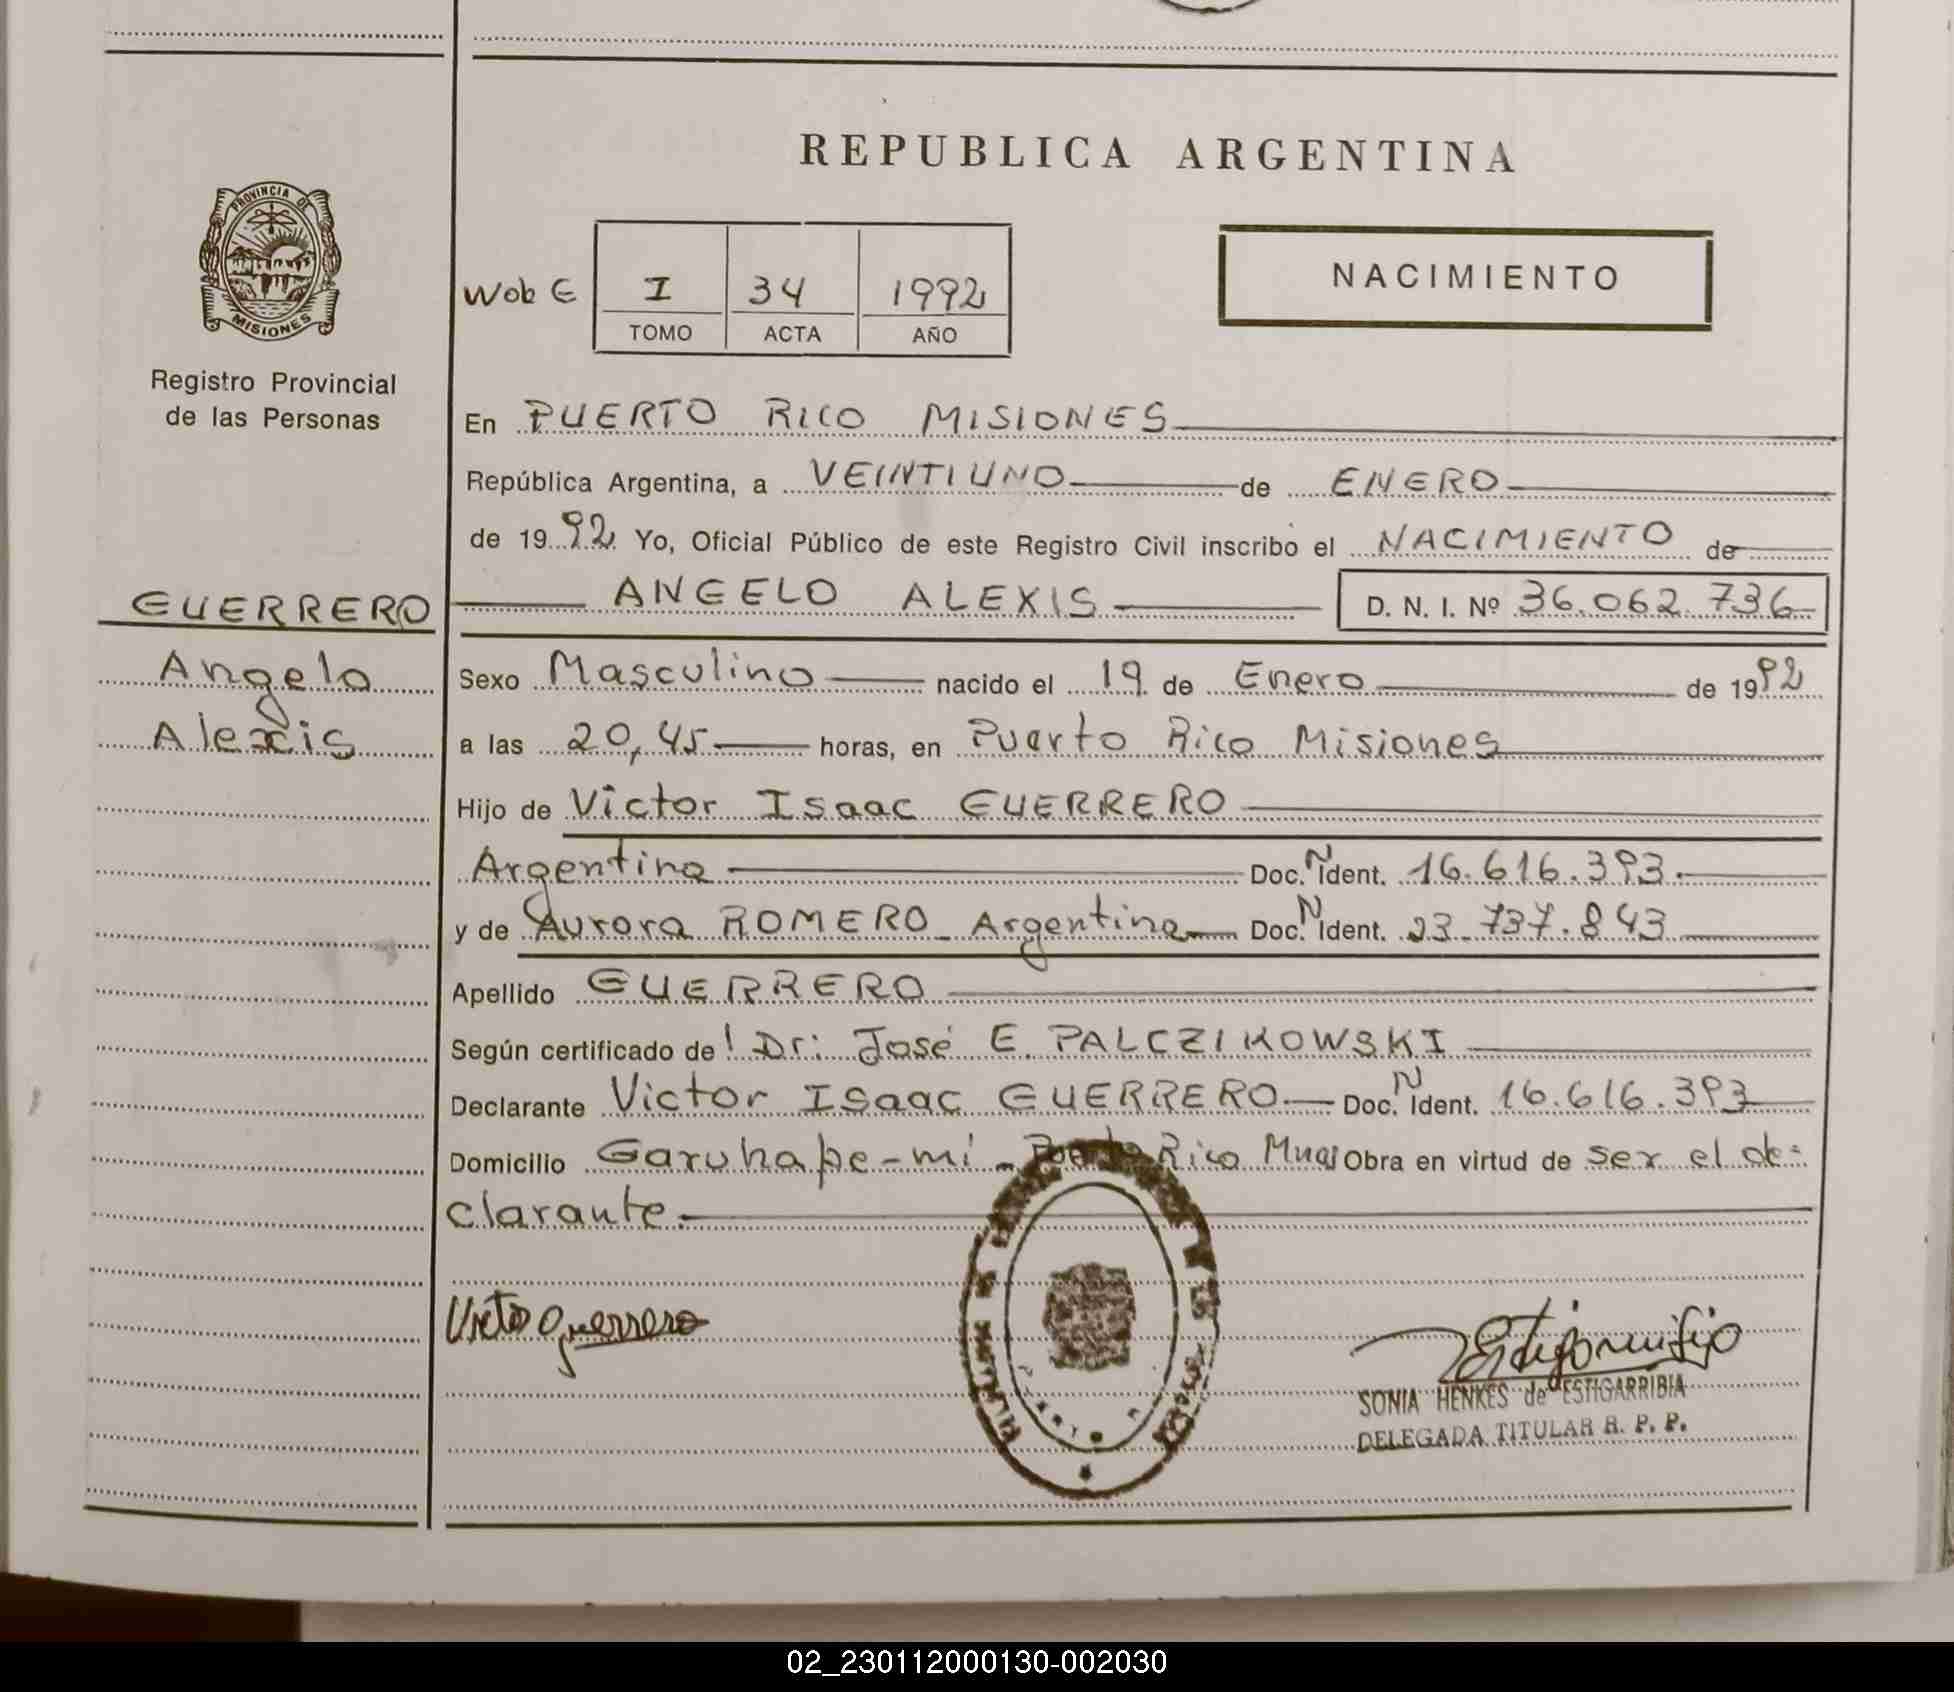 REPUBLICA ARGENTINA
PROVINCIA DE
MISIONES
Registro Provincial
de las Personas
Wob E
I 34 1992
TOMO ACTA AÑO
NACIMIENTO
En PUERTO RICO MISIONES
República Argentina, a VEINTIUNO de ENERO
de 1992 Yo, Oficial Público de este Registro Civil inscribo el NACIMIENTO de
GUERRERO
ANGELO ALEXIS D. N. I. Nº 36.062.736
Angelo
Alexis
Sexo Masculino nacido el 19 de Enero de 1992
a las 20,45 horas, en Puerto Rico Misiones
Hijo de Victor Isaac GUERRERO
Argentina Doc. N Ident. 16.616.393.
y de Aurora ROMERO Argentina Doc. N Ident. 23.737.843
Apellido GUERRERO
Según certificado de ! Dr: José E. PALCZIKOWSKI
Declarante Victor Isaac GUERRERO Doc. N Ident. 16.616.393
Domicilio Garuhape-mi Puerto Rico Obra en virtud de ser el de=
clarante.
Victor Guerrero
SONIA HENKES de ESTIGARRIBIA
DELEGADA TITULAR R. P. P.
02_230112000130-002030